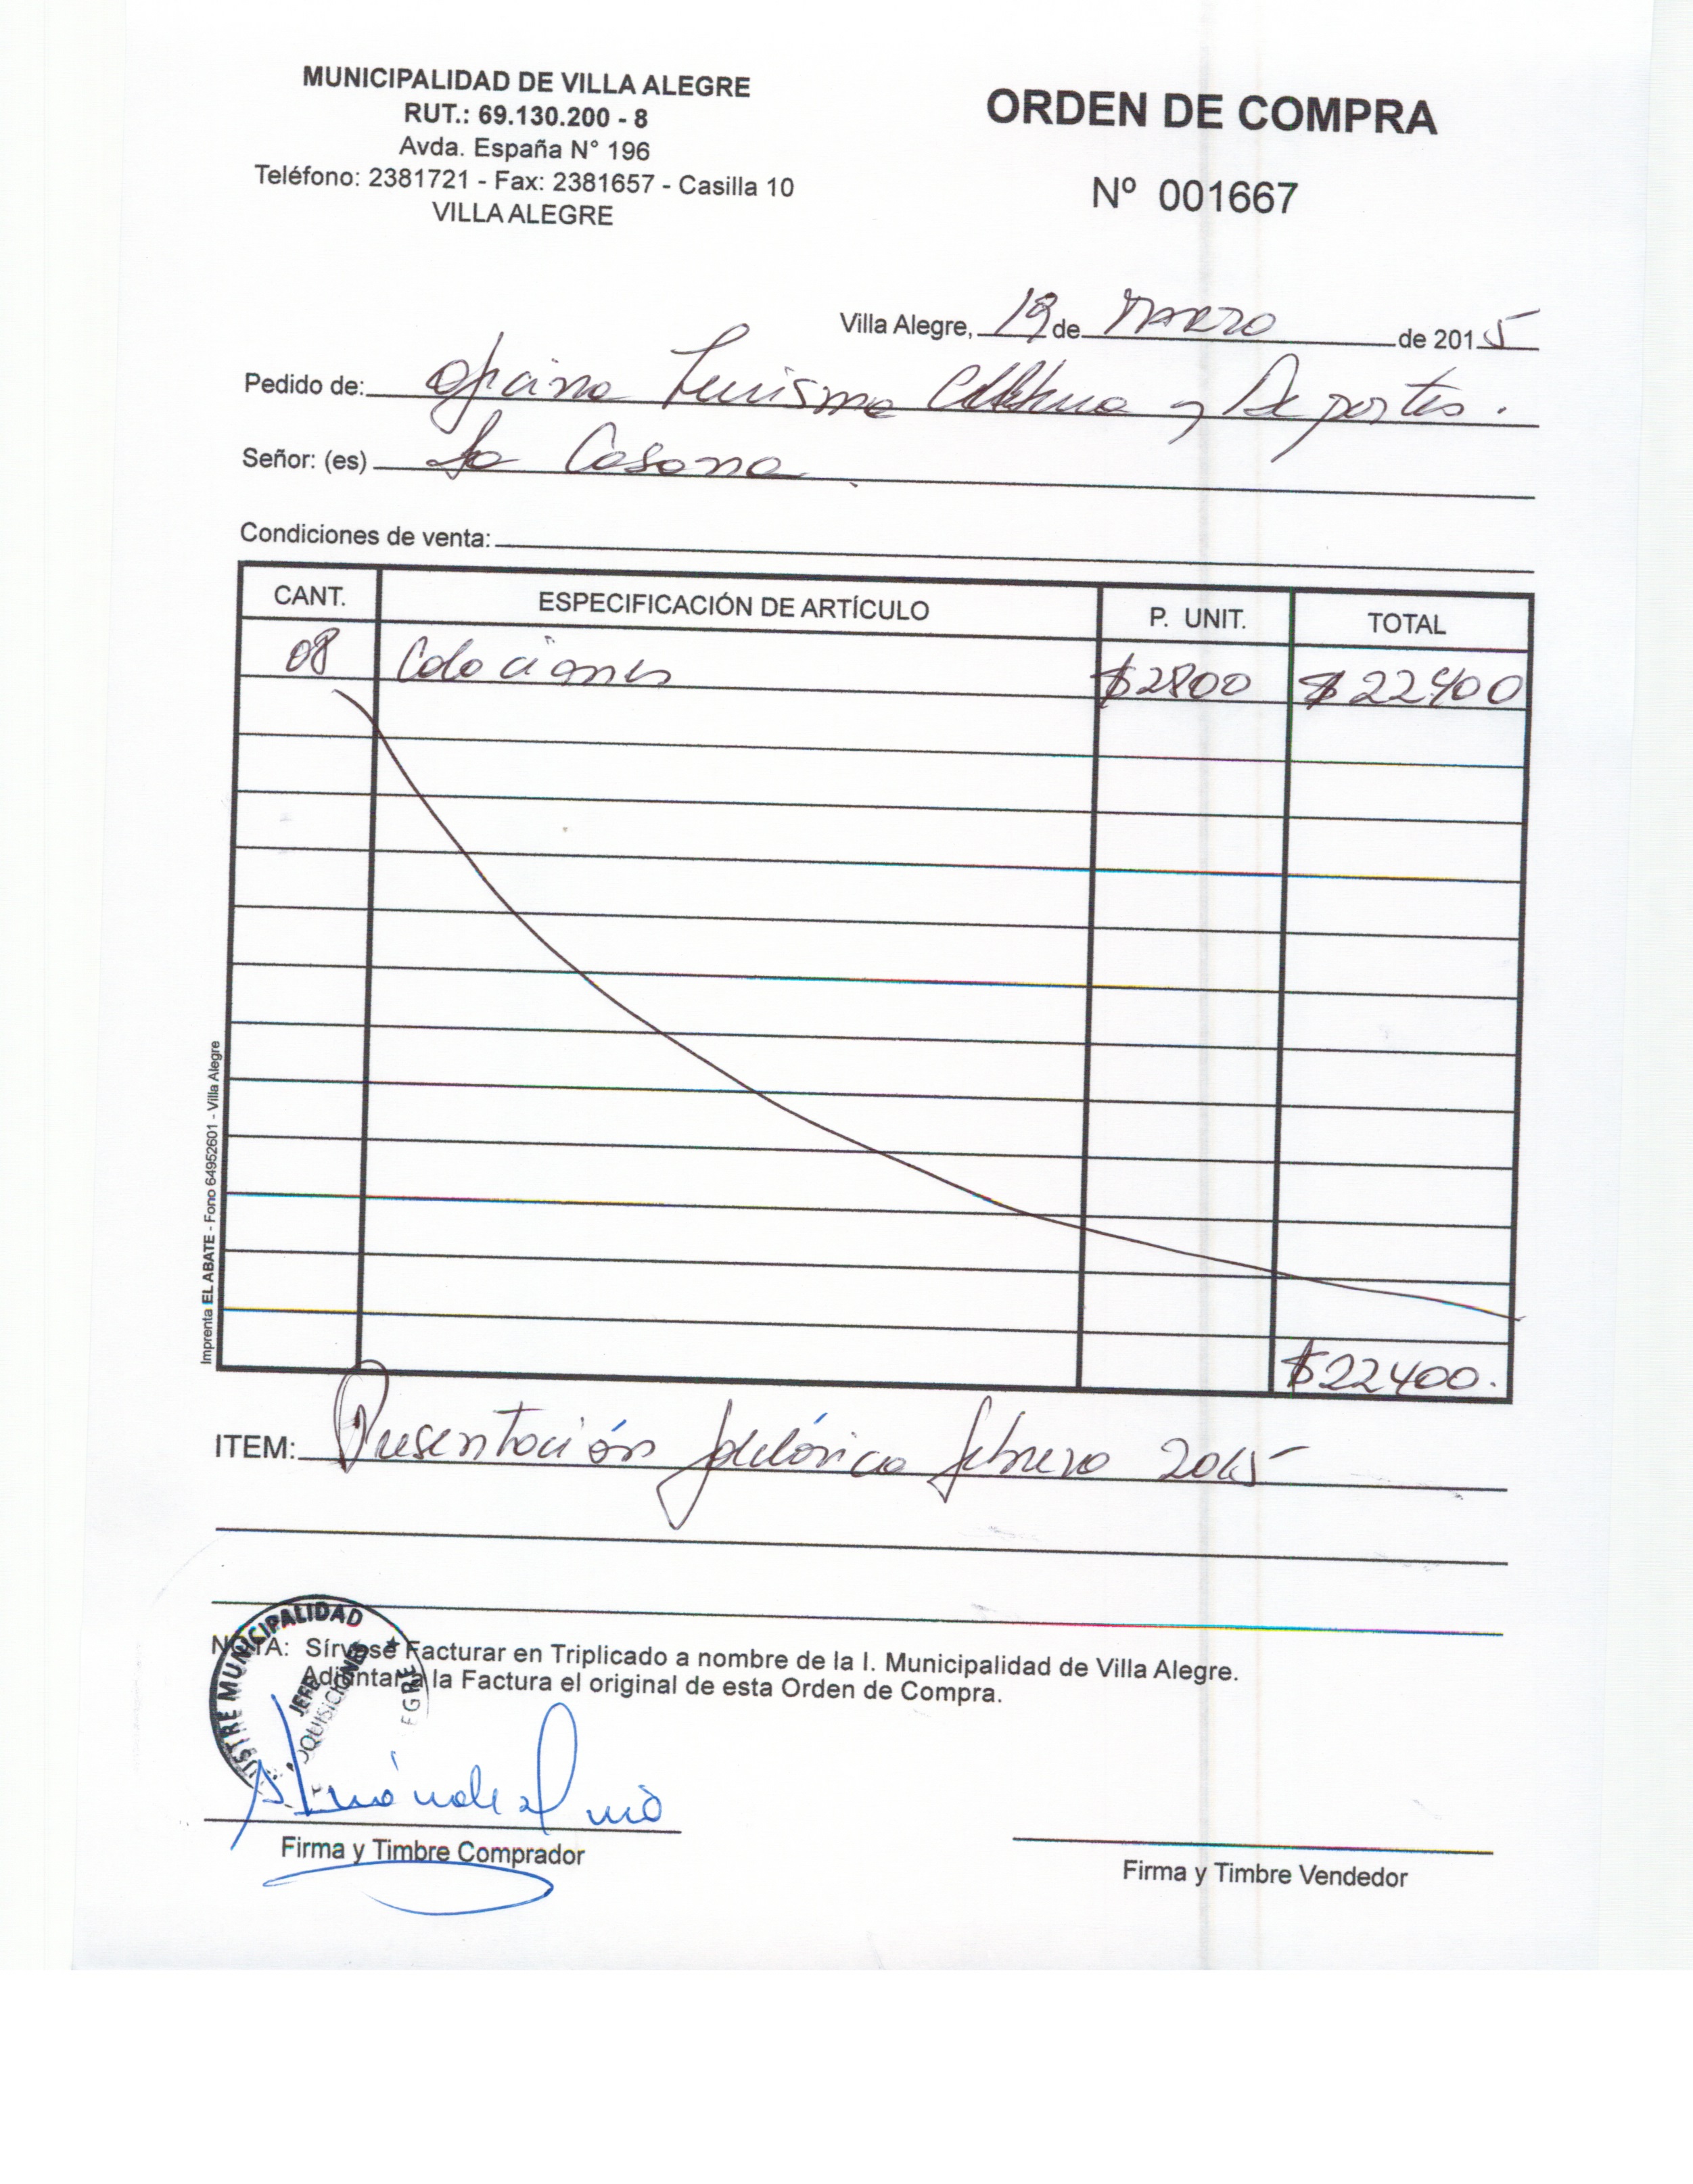 MUNICIPALIDAD DE VILLA ALEGRE
RUT.: 69.130.200 - 8
Avda. España N° 196
Teléfono: 2381721 - Fax: 2381657 - Casilla 10
VILLA ALEGRE
ORDEN DE COMPRA
Nº 001667
Villa Alegre, 19 de Marzo de 2015
Pedido de: Oficina Turismo Cultura y Deportes.
Señor: (es) La Casona
Condiciones de venta:
CANT. ESPECIFICACIÓN DE ARTÍCULO P. UNIT. TOTAL
08 Colaciones $2800 $22400
$22400.
ITEM: Presentación folclórica febrero 2015
NOTA: Sírvase Facturar en Triplicado a nombre de la I. Municipalidad de Villa Alegre.
Adjuntar a la Factura el original de esta Orden de Compra.
USTRE MUNICIPALIDAD
JEFE
DQUISICIONES
EGRE
Firma y Timbre Comprador
Firma y Timbre Vendedor
Imprenta EL ABATE - Fono 64952601 - Villa Alegre